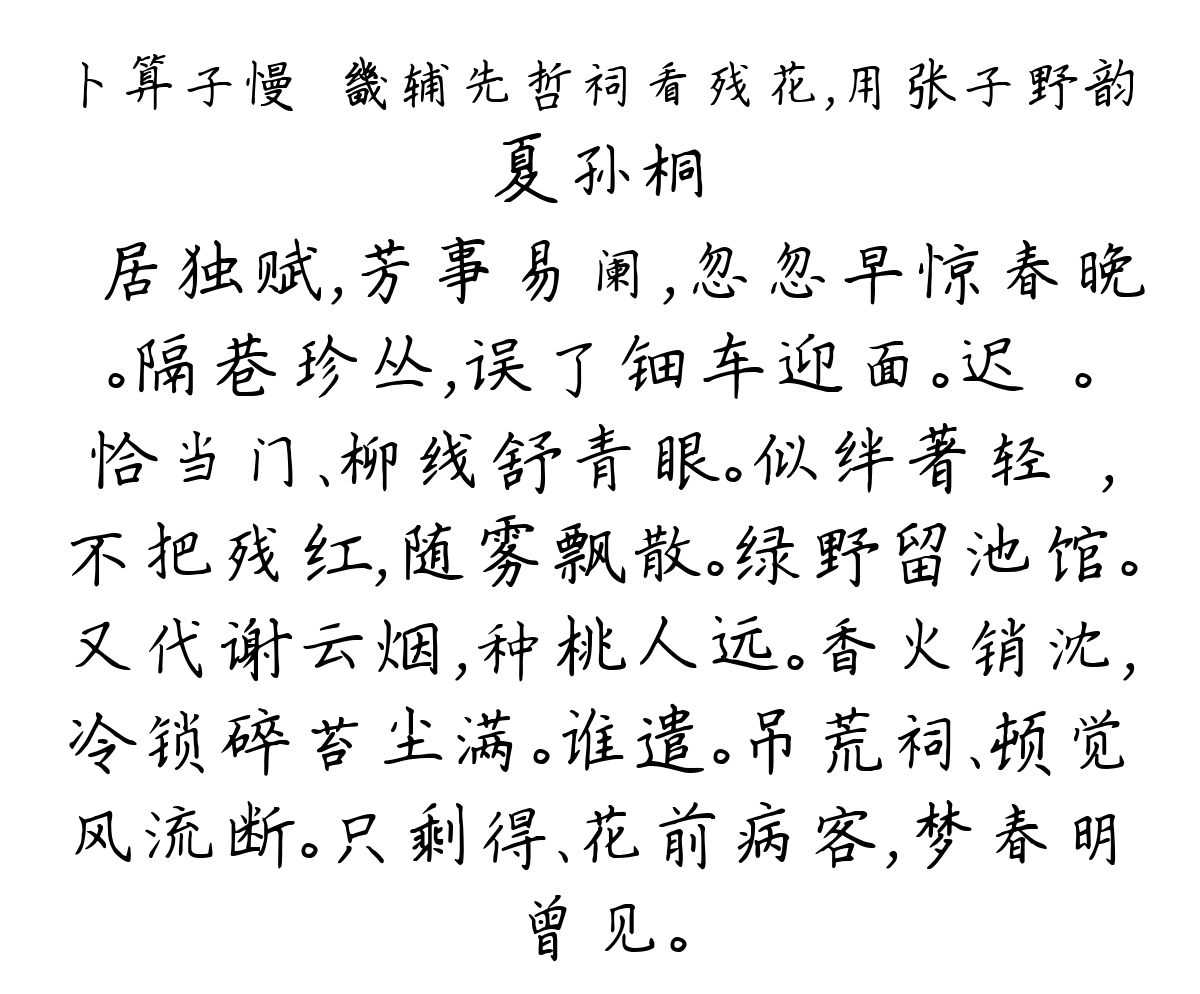 卜算子慢 畿辅先哲祠看残花,用张子野韵
夏孙桐
居独赋,芳事易阑,忽忽早惊春晚
。隔巷珍丛,误了钿车迎面。迟 。
恰当门、柳线舒青眼。似绊著轻 ,
不把残红,随雾飘散。绿野留池馆。
又代谢云烟,种桃人远。香火销沈,
冷锁碎苔尘满。谁遣。吊荒祠、顿觉
风流断。只剩得、花前病客,梦春明
曾见。